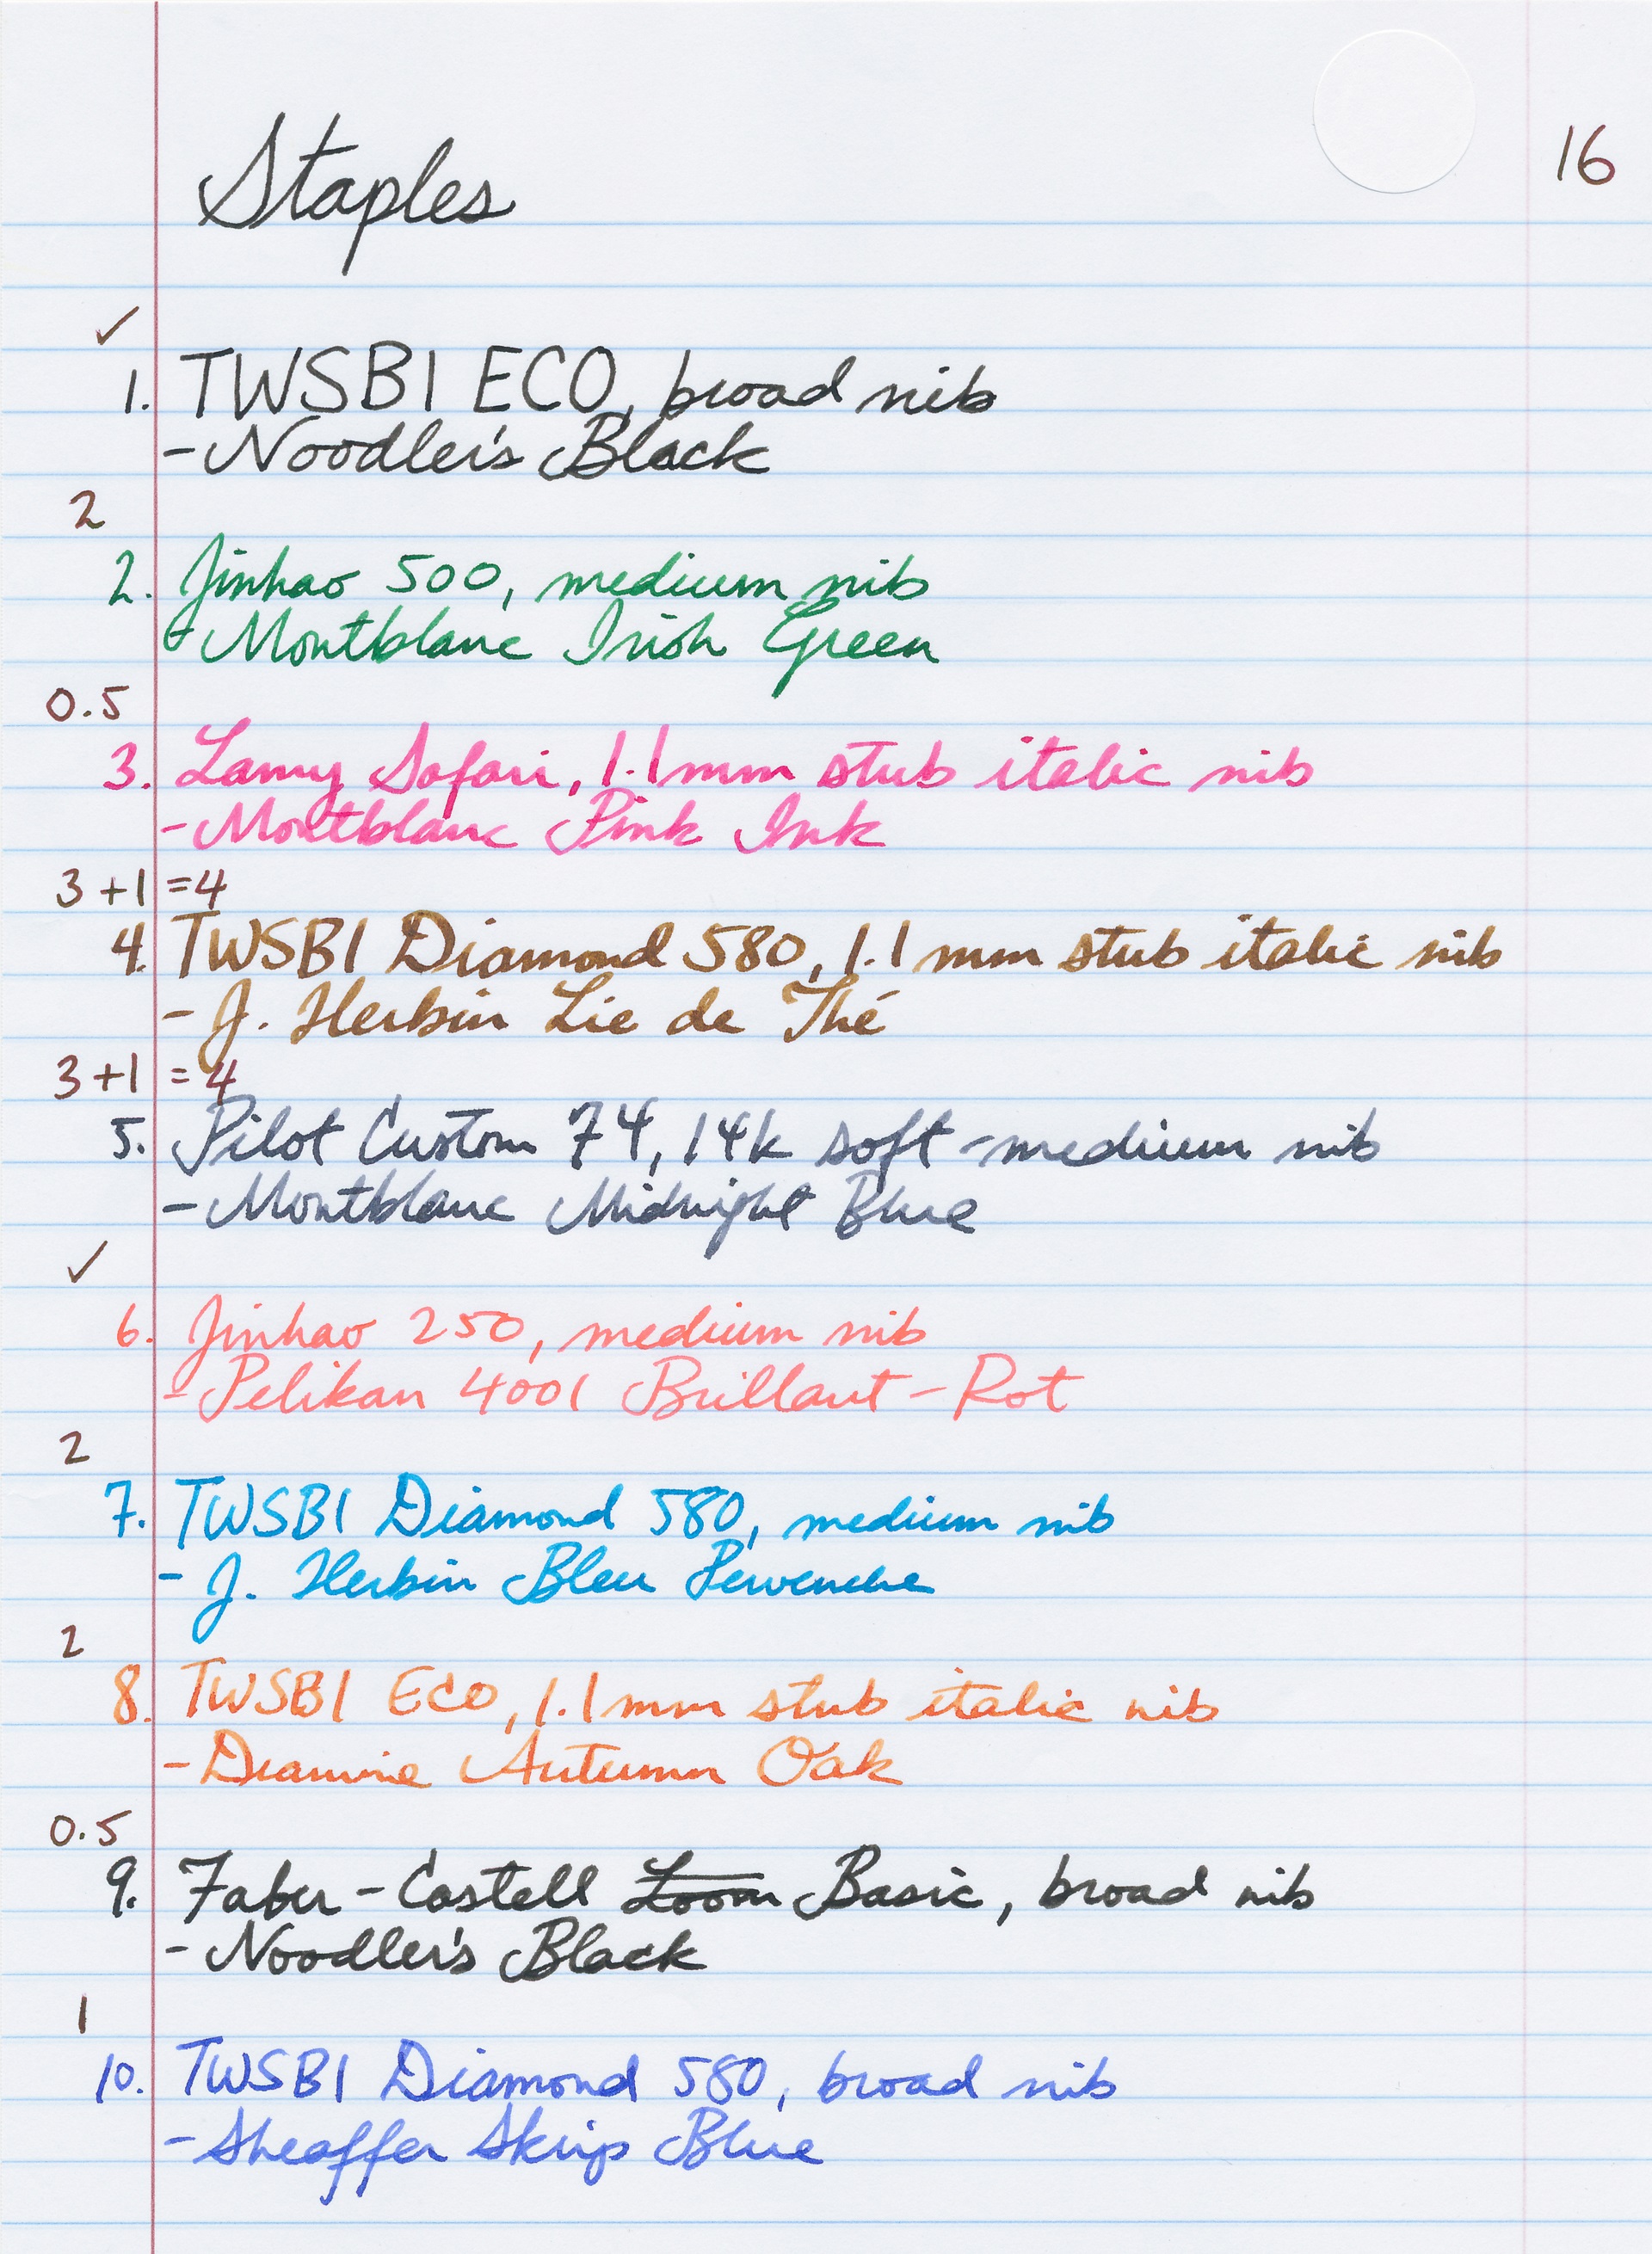 Staples
16
✓
1. TWSBI ECO, broad nib
- Noodler's Black
2
2. Jinhao 500, medium nib
- Montblanc Irish Green
0.5
3. Lamy Safari, 1.1mm stub italic nib
- Montblanc Pink Ink
3+1=4
4. TWSBI Diamond 580, 1.1mm stub italic nib
- J. Herbin Lie de Thé
3+1=4
5. Pilot Custom 74, 14k soft-medium nib
- Montblanc Midnight Blue
✓
6. Jinhao 250, medium nib
- Pelikan 4001 Brillant-Rot
2
7. TWSBI Diamond 580, medium nib
- J. Herbin Bleu Pervenche
2
8. TWSBI Eco, 1.1mm stub italic nib
- Diamine Autumn Oak
0.5
9. Faber-Castell Loom Basic, broad nib
- Noodler's Black
1
10. TWSBI Diamond 580, broad nib
- Sheaffer Skrip Blue